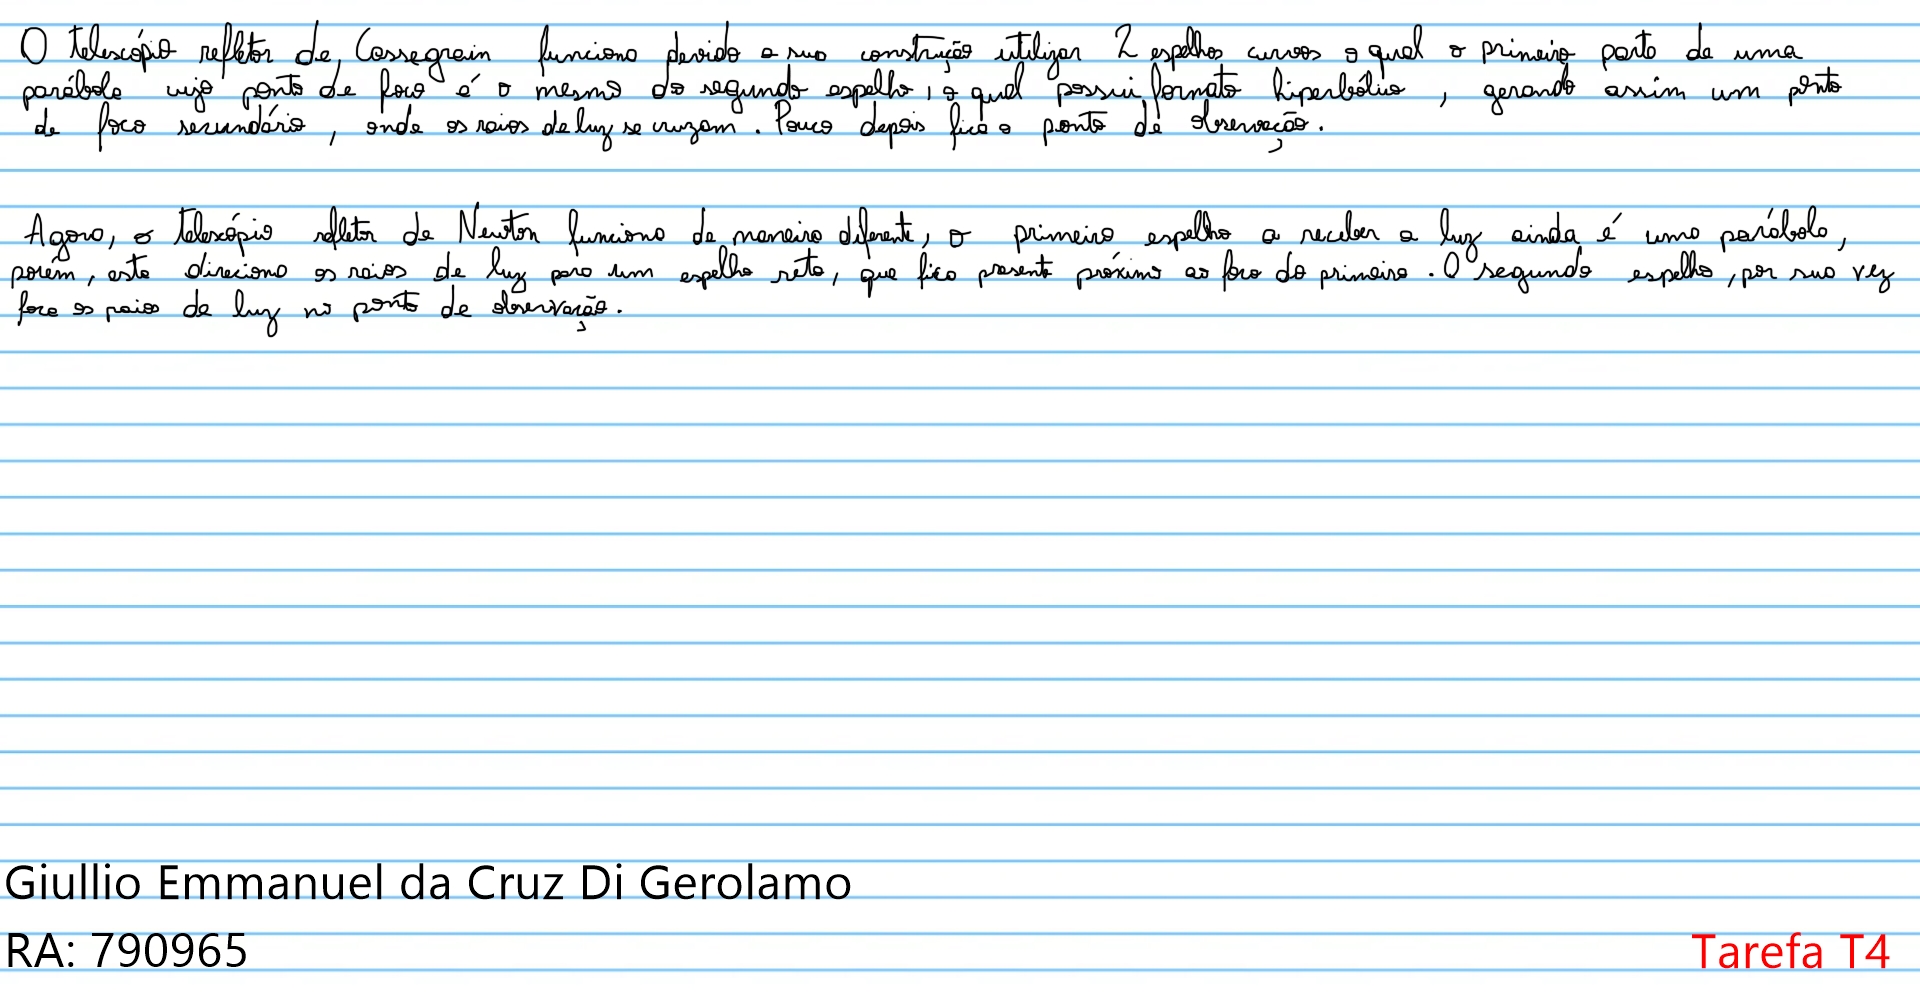 O telescópio refletor de Cassegrain funciona devido a sua construção utilizar 2 espelhos curvos o qual o primeiro parte de uma
parábola cujo ponto de foco é o mesmo do segundo espelho, o qual possui formato hiperbólico, gerando assim um ponto
de foco secundário, onde os raios de luz se cruzam. Pouco depois fica o ponto de observação.
Agora, o telescópio refletor de Newton funciona de maneira diferente, o primeiro espelho a receber a luz ainda é uma parábola,
porém, esta direciona os raios de luz para um espelho reto, que fica presente próximo ao foco do primeiro. O segundo espelho, por sua vez
foca os raios de luz no ponto de observação.
Giullio Emmanuel da Cruz Di Gerolamo
RA: 790965
Tarefa T4